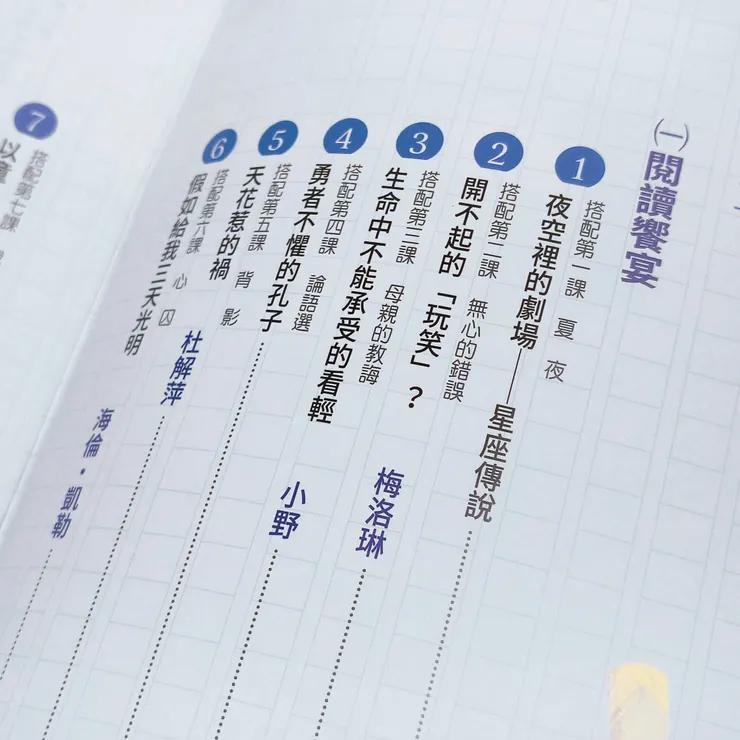 ㈠閱讀饗宴
1
搭配第一課 夏夜
夜空裡的劇場——星座傳說
2
搭配第二課 無心的錯誤
開不起的「玩笑」？ 梅洛琳
3
搭配第三課 母親的教誨
生命中不能承受的看輕 小野
4
搭配第四課 論語選
勇者不懼的孔子
5
搭配第五課 背影
天花惹的禍 杜解萍
6
搭配第六課 心囚
假如給我三天光明 海倫・凱勒
7
搭配第七課
以